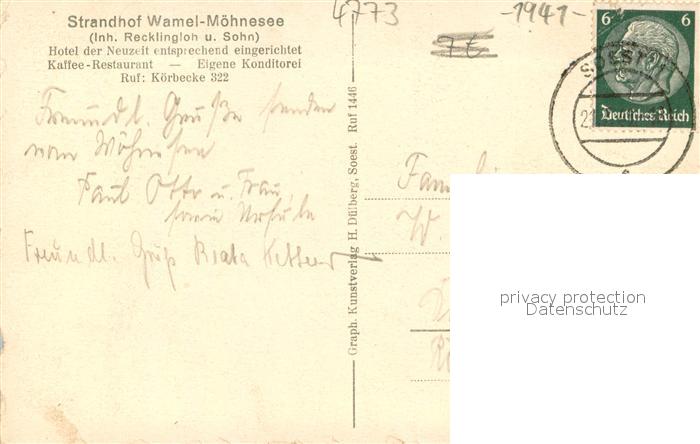 Strandhof Wamel-Möhnesee
(Inh. Recklingloh u. Sohn)
Hotel der Neuzeit entsprechend eingerichtet
Kaffee-Restaurant — Eigene Konditorei
Ruf: Körbecke 322
4773
-1941-
6 6
Deutsches Reich
SOEST
Freundl. Grüße senden
vom Möhnesee
Paul Otto u. Frau
sowie Ursula
Freundl. Gruß Beata
Graph. Kunstverlag H. Dülberg, Soest. Ruf 1446
Fam
W.
privacy protection
Datenschutz